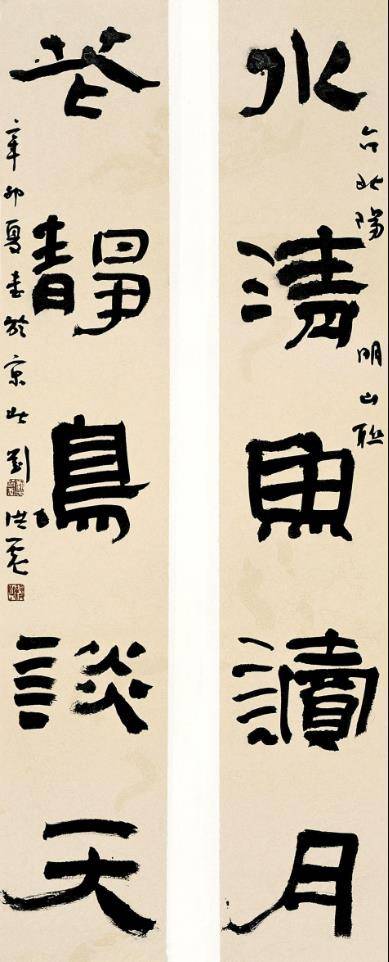 台北陽明山聯
水清魚讀月
花靜鳥談天
辛卯夏書於京北劉洪彪